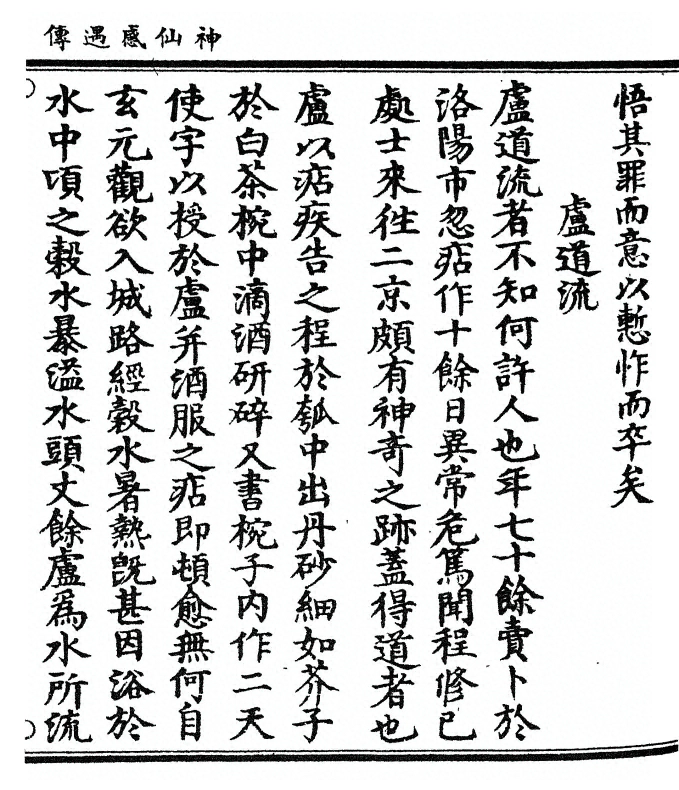 神仙感遇傳
悟其罪而意以慙怍而卒矣
盧道流
盧道流者不知何許人也年七十餘賣卜於
洛陽市忽痁作十餘日異常危篤聞程修已
處士來徃二京頗有神奇之跡蓋得道者也
盧以痁疾告之程於瓠中出丹砂細如芥子
於白茶椀中滴酒研碎又書椀子内作二天
使字以授於盧并酒服之痁即頓愈無何自
玄元觀欲入城路經穀水暑熱旣甚因浴於
水中頃之穀水暴溢水頭丈餘盧爲水所流